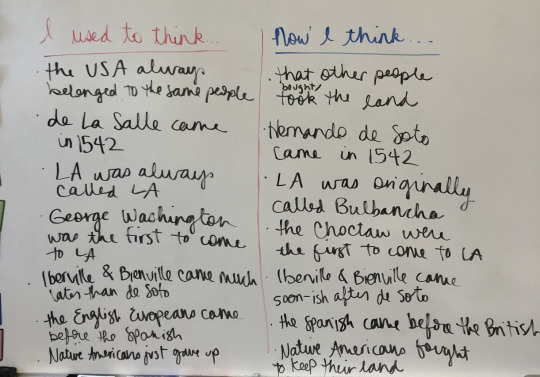 I used to think...
· the USA always
belonged to the same people
· de La Salle came
in 1542
· LA was always
called LA
· George Washington
was the first to come
to LA
· Iberville & Bienville came much
later than de Soto
· the English Europeans came
before the Spanish
· Native Americans just gave up
Now I think...
· that other people
bought/
took the land
· Hernando de Soto
came in 1542
· LA was originally
called Bulbancha
· the Choctaw were
the first to come to LA
· Iberville & Bienville came
soon-ish after de Soto
· the Spanish came before the British
· Native Americans fought
to keep their land